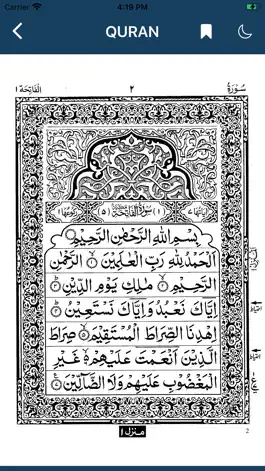 Carrier 4:19 PM
QURAN
سُورَةُ ٢ اَلْفَاتِحَة ١
اٰيَاتُهَا ٧ (١) سُوْرَةُ الْفَاتِحَةِ مَكِّيَّةٌ (٥) رُكُوْعُهَا ١
بِسْمِ اللّٰهِ الرَّحْمٰنِ الرَّحِيْمِ
اَلْحَمْدُ لِلّٰهِ رَبِّ الْعٰلَمِيْنَ ۙ﴿١﴾ الرَّحْمٰنِ
الرَّحِيْمِ ۙ﴿٢﴾ مٰلِكِ يَوْمِ الدِّيْنِ ؕ﴿٣﴾
اِيَّاكَ نَعْبُدُ وَاِيَّاكَ نَسْتَعِيْنُ ؕ﴿٤﴾
اِهْدِنَا الصِّرَاطَ الْمُسْتَقِيْمَ ۙ﴿٥﴾ صِرَاطَ
الَّذِيْنَ اَنْعَمْتَ عَلَيْهِمْ ۙ﴿٦﴾ غَيْرِ
الْمَغْضُوْبِ عَلَيْهِمْ وَلَا الضَّآلِّيْنَ ﴿٧﴾
منزل ١
2